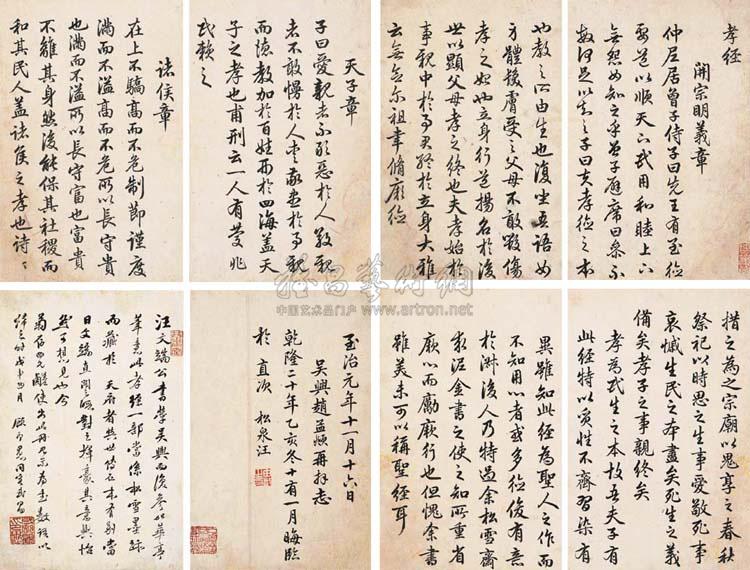 孝経
開宗明義章
仲尼居曾子侍子曰先王有至德
要道以順天下民用和睦上下
無怨女知之乎曾子避席曰參不
敏何足以知之子曰夫孝德之本
也教之所由生也復坐吾語女
身體髮膚受之父母不敢毀傷
孝之始也立身行道揚名於後
世以顯父母孝之終也夫孝始於
事親中於事君終於立身大雅
云無念尔祖聿脩厥德
天子章
子曰愛親者不敢惡於人敬親
者不敢慢於人愛敬盡於事親
而德教加於百姓形於四海蓋天
子之孝也甫刑云一人有慶兆
民賴之
諸侯章
在上不驕高而不危制節謹度
滿而不溢高而不危所以長守貴
也滿而不溢所以長守富也富貴
不離其身然後能保其社稷而
和其民人蓋諸侯之孝也詩
措之為之宗廟以鬼享之春秋
祭祀以時思之生事愛敬死事
哀慼生民之本盡矣死生之義
備矣孝子之事親終矣
孝為民生之本故吾夫子有
此經特以質性不齊習染有
異雖知此經為聖人之作而
不知用以者或多后復有意
於淋後人乃特過余松雪齋
求泥金書之使之知所重省
厥以而勵厥行也但愧余書
雖美未可以稱聖經耳
至治元年十一月十六日
吳興趙孟頫再拜志
乾隆二十年乙亥冬十有一月晦臨
於直次 松泉汪
汪文端公書學吳興而後參以華亭
筆意此孝經一部當係松雪墨跡
而藏於天府者與世傳石本有別當
日文端直閣之暇對之揮豪其意興怡
然可想見也今
雅昌藝術網
中国艺术品门户 www.artron.net